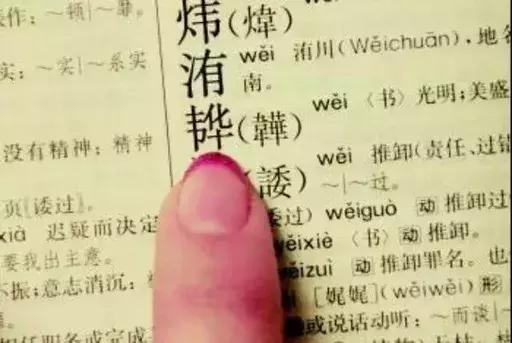 作：～顿｜～靡。
实：～实｜～系实
没有精神：精神
页〖诿过〗
xià 迟疑而决定
要我出主意。
振；意志消沉：
职务或完成
炜（煒） wěi
洧 wěi 洧川（Wěichuān），地名
南。
韡（韡） wěi 〈书〉光明；美盛
（諉） wěi 推卸（责任、过错
～｜～过。
委过）wěiguò 动 推卸过
wěixiè 〈书〉动 推卸。
wěizuì 动 推卸罪名。也
［娓娓］（wěiwěi）形
或说话动听：～而谈｜～